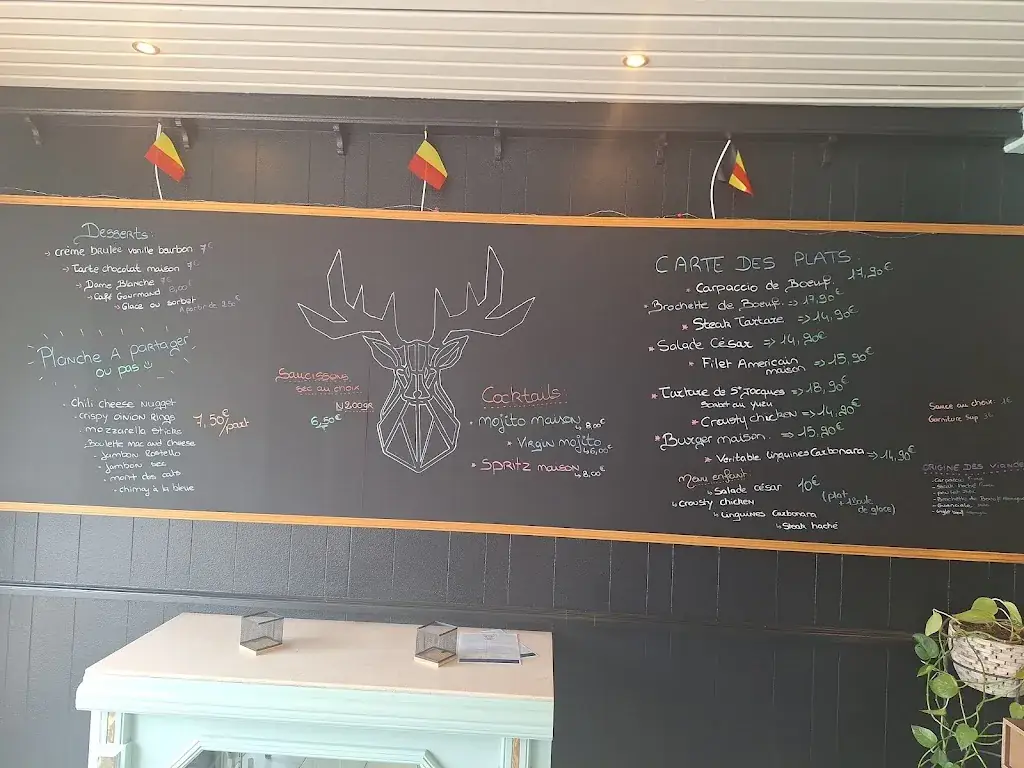 Desserts:
→ Crème Brulée vanille bourbon 7€
→ Tarte chocolat maison 7€
→ Dame Blanche 7€
→ Café Gourmand 8,00€
→ Glace ou sorbet
A partir de 2.50€
Planche A partager
ou pas
- Chili cheese Nugget
- crispy onion Rings
- mozzarella sticks
- Boulette mac and cheese
- Jambon Rostello
- Jambon sec
- mont des cats
- chimay à la bleue
7,50€/part
Saucissons
sec au choix
200gr
6,50€
Cocktails:
• Mojito maison ↳ 8,00€
• Virgin mojito ↳ 6,00€
• Spritz maison ↳ 8,00€
CARTE DES PLATS:
* Carpaccio de Boeuf 17,90€
* Brochette de Boeuf => 17,90€
* Steak Tartare => 14,90€
* Salade César => 14,90€
* Filet Americain => 15,90€
maison
* Tartare de St Jacques => 18,90€
sorbet au yuzu
* Crousty chicken => 14,90€
* Burger maison => 15,90€
* Veritable linguines Carbonara → 14,90€
Menu enfant 10€
↳ Salade césar (plat
↳ Crousty chicken + 1 boule
↳ linguines Carbonara de glace)
↳ Steak haché
Sauce au choix: 1€
Garniture sup
ORIGINE DES VIANDES
- Carpaccio
- Steak haché
- Brochette de Boeuf
- Guanciale